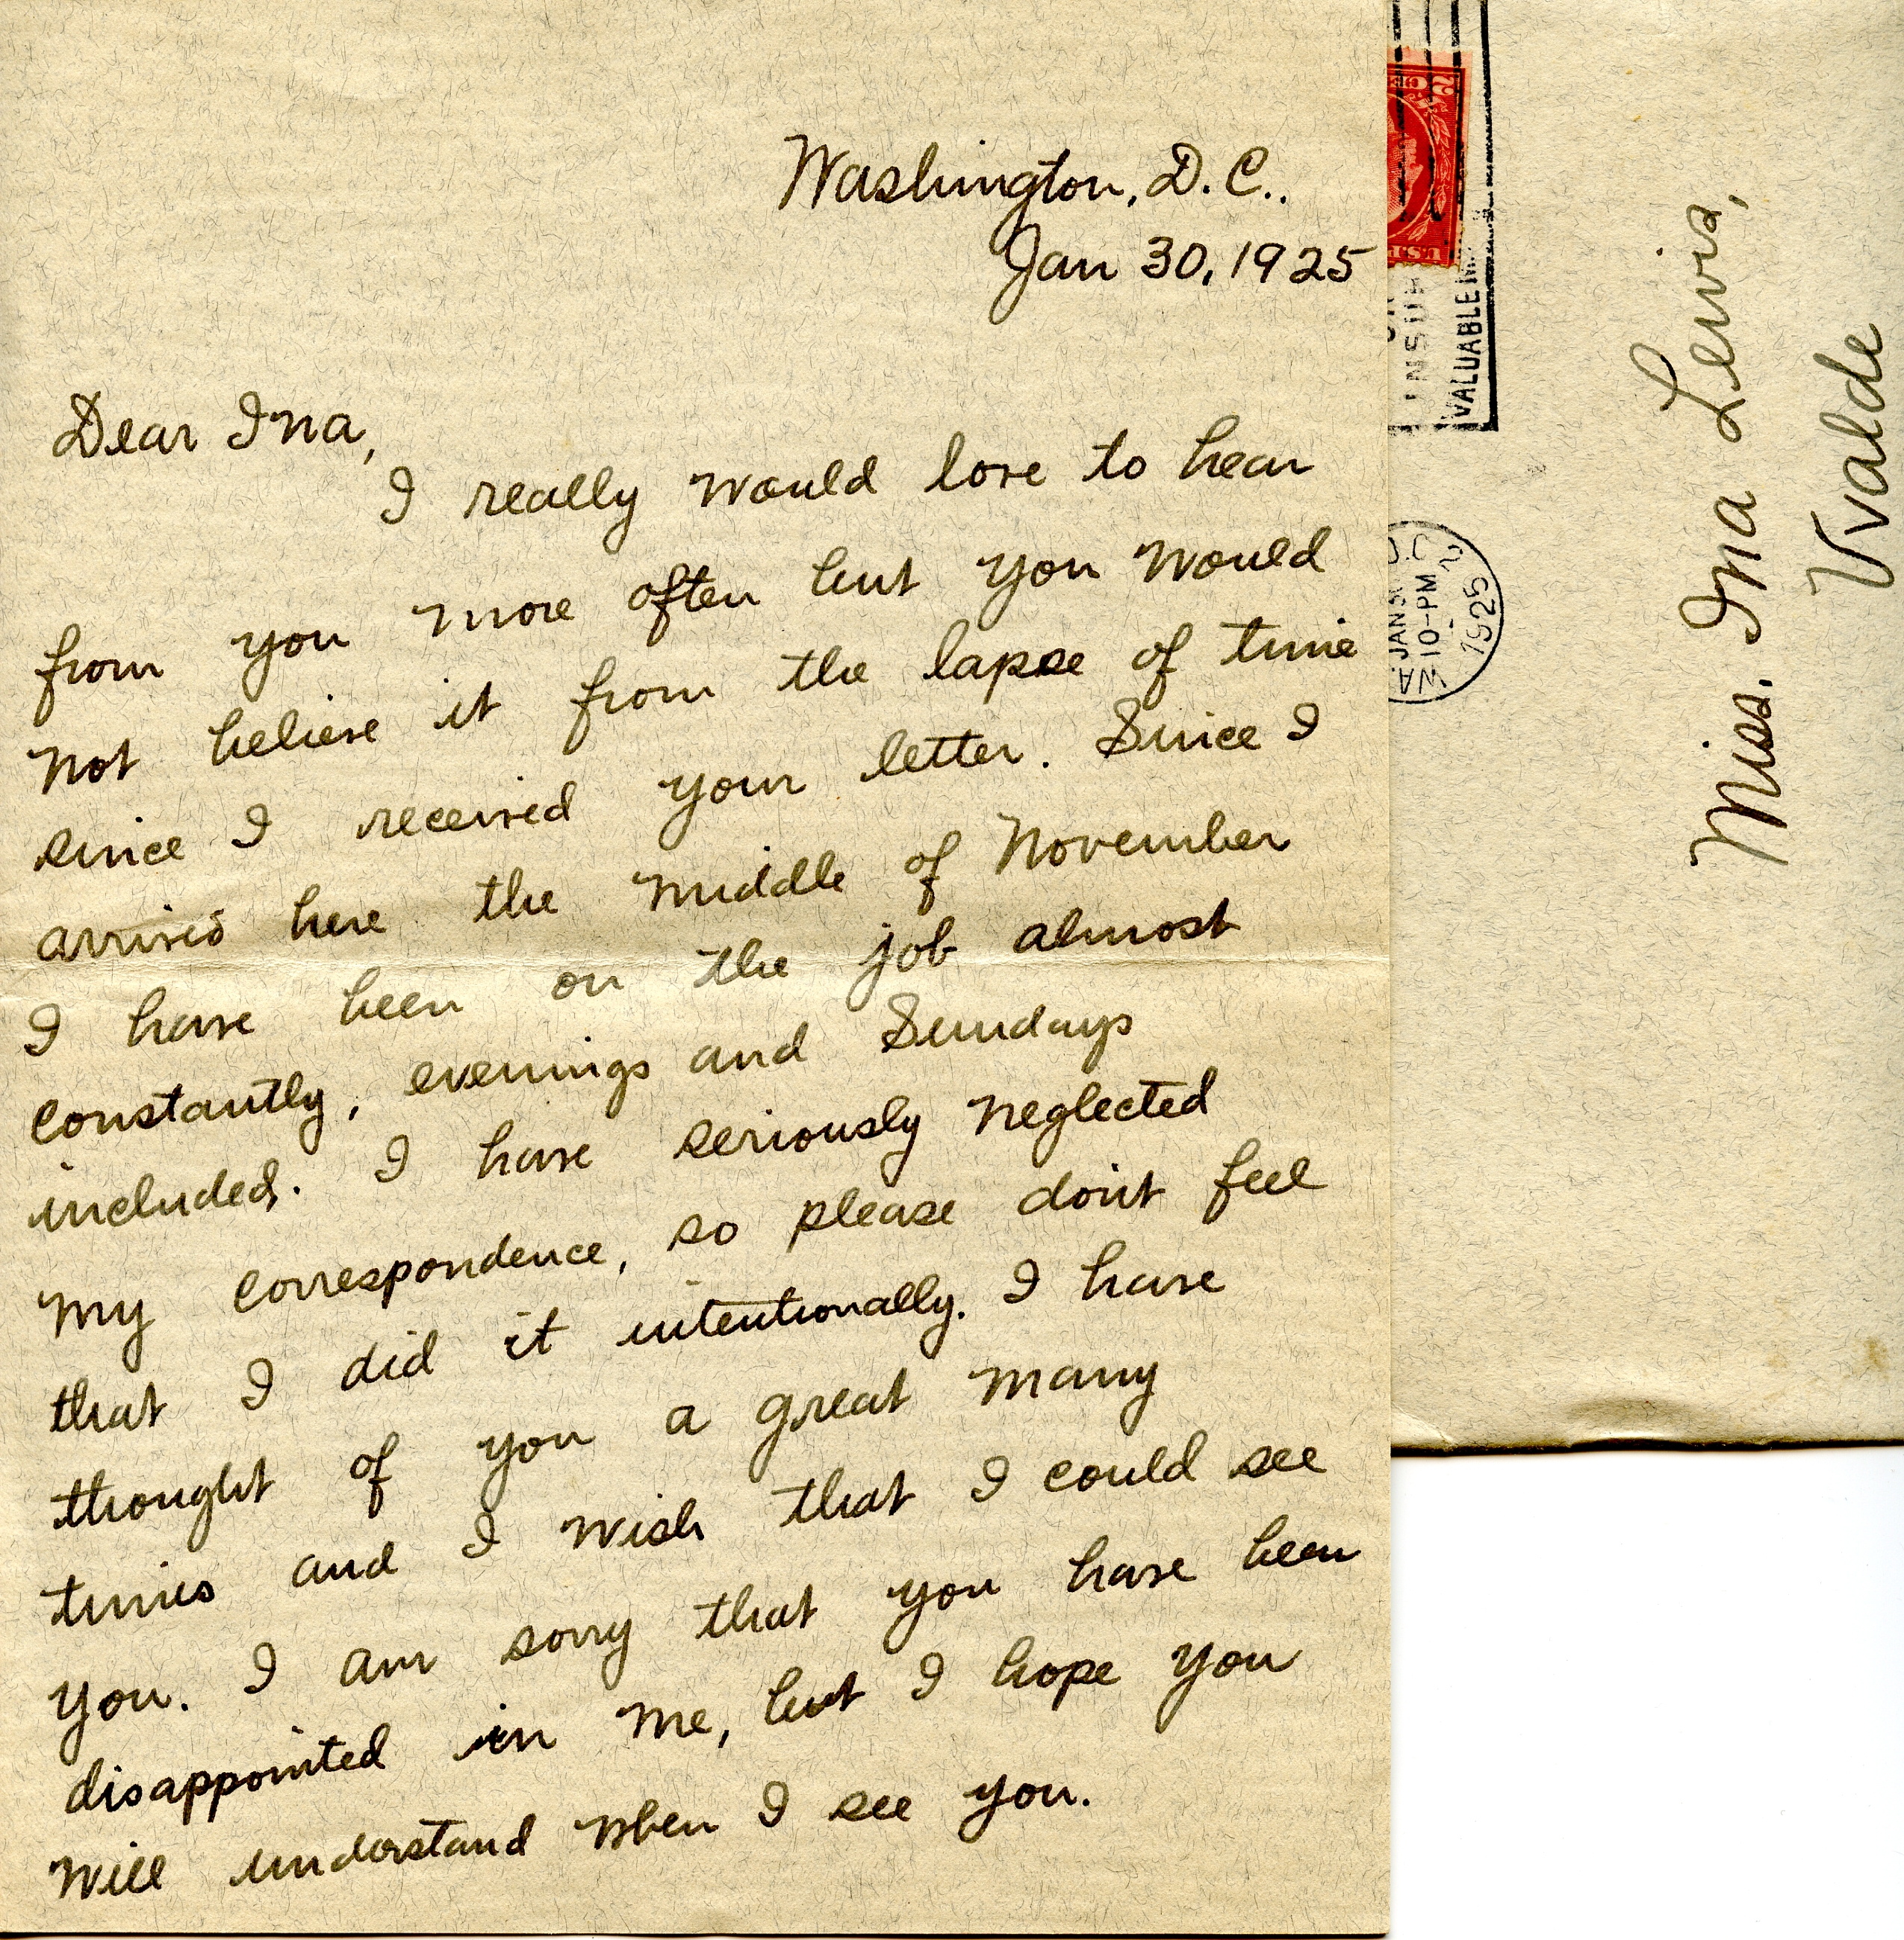 Washington, D.C..
Jan 30, 1925
Dear Ina,
I really would love to hear
from you more often but you would
not believe it from the lapse of time
since I received your letter. Since I
arrived here the middle of November
I have been on the job almost
constantly, evenings and Sundays
included. I have seriously neglected
my correspondence, so please don't feel
that I did it intentionally. I have
thought of you a great many
times and I wish that I could see
you. I am sorry that you have been
disappointed in me, but I hope you
will understand when I see you.
VALUABLE
D.C.
JAN
10-PM
1925
WA
Miss. Ina Lewis,
Uvalde